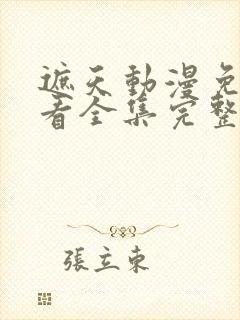 遮天動漫免
看全集完整
張立東